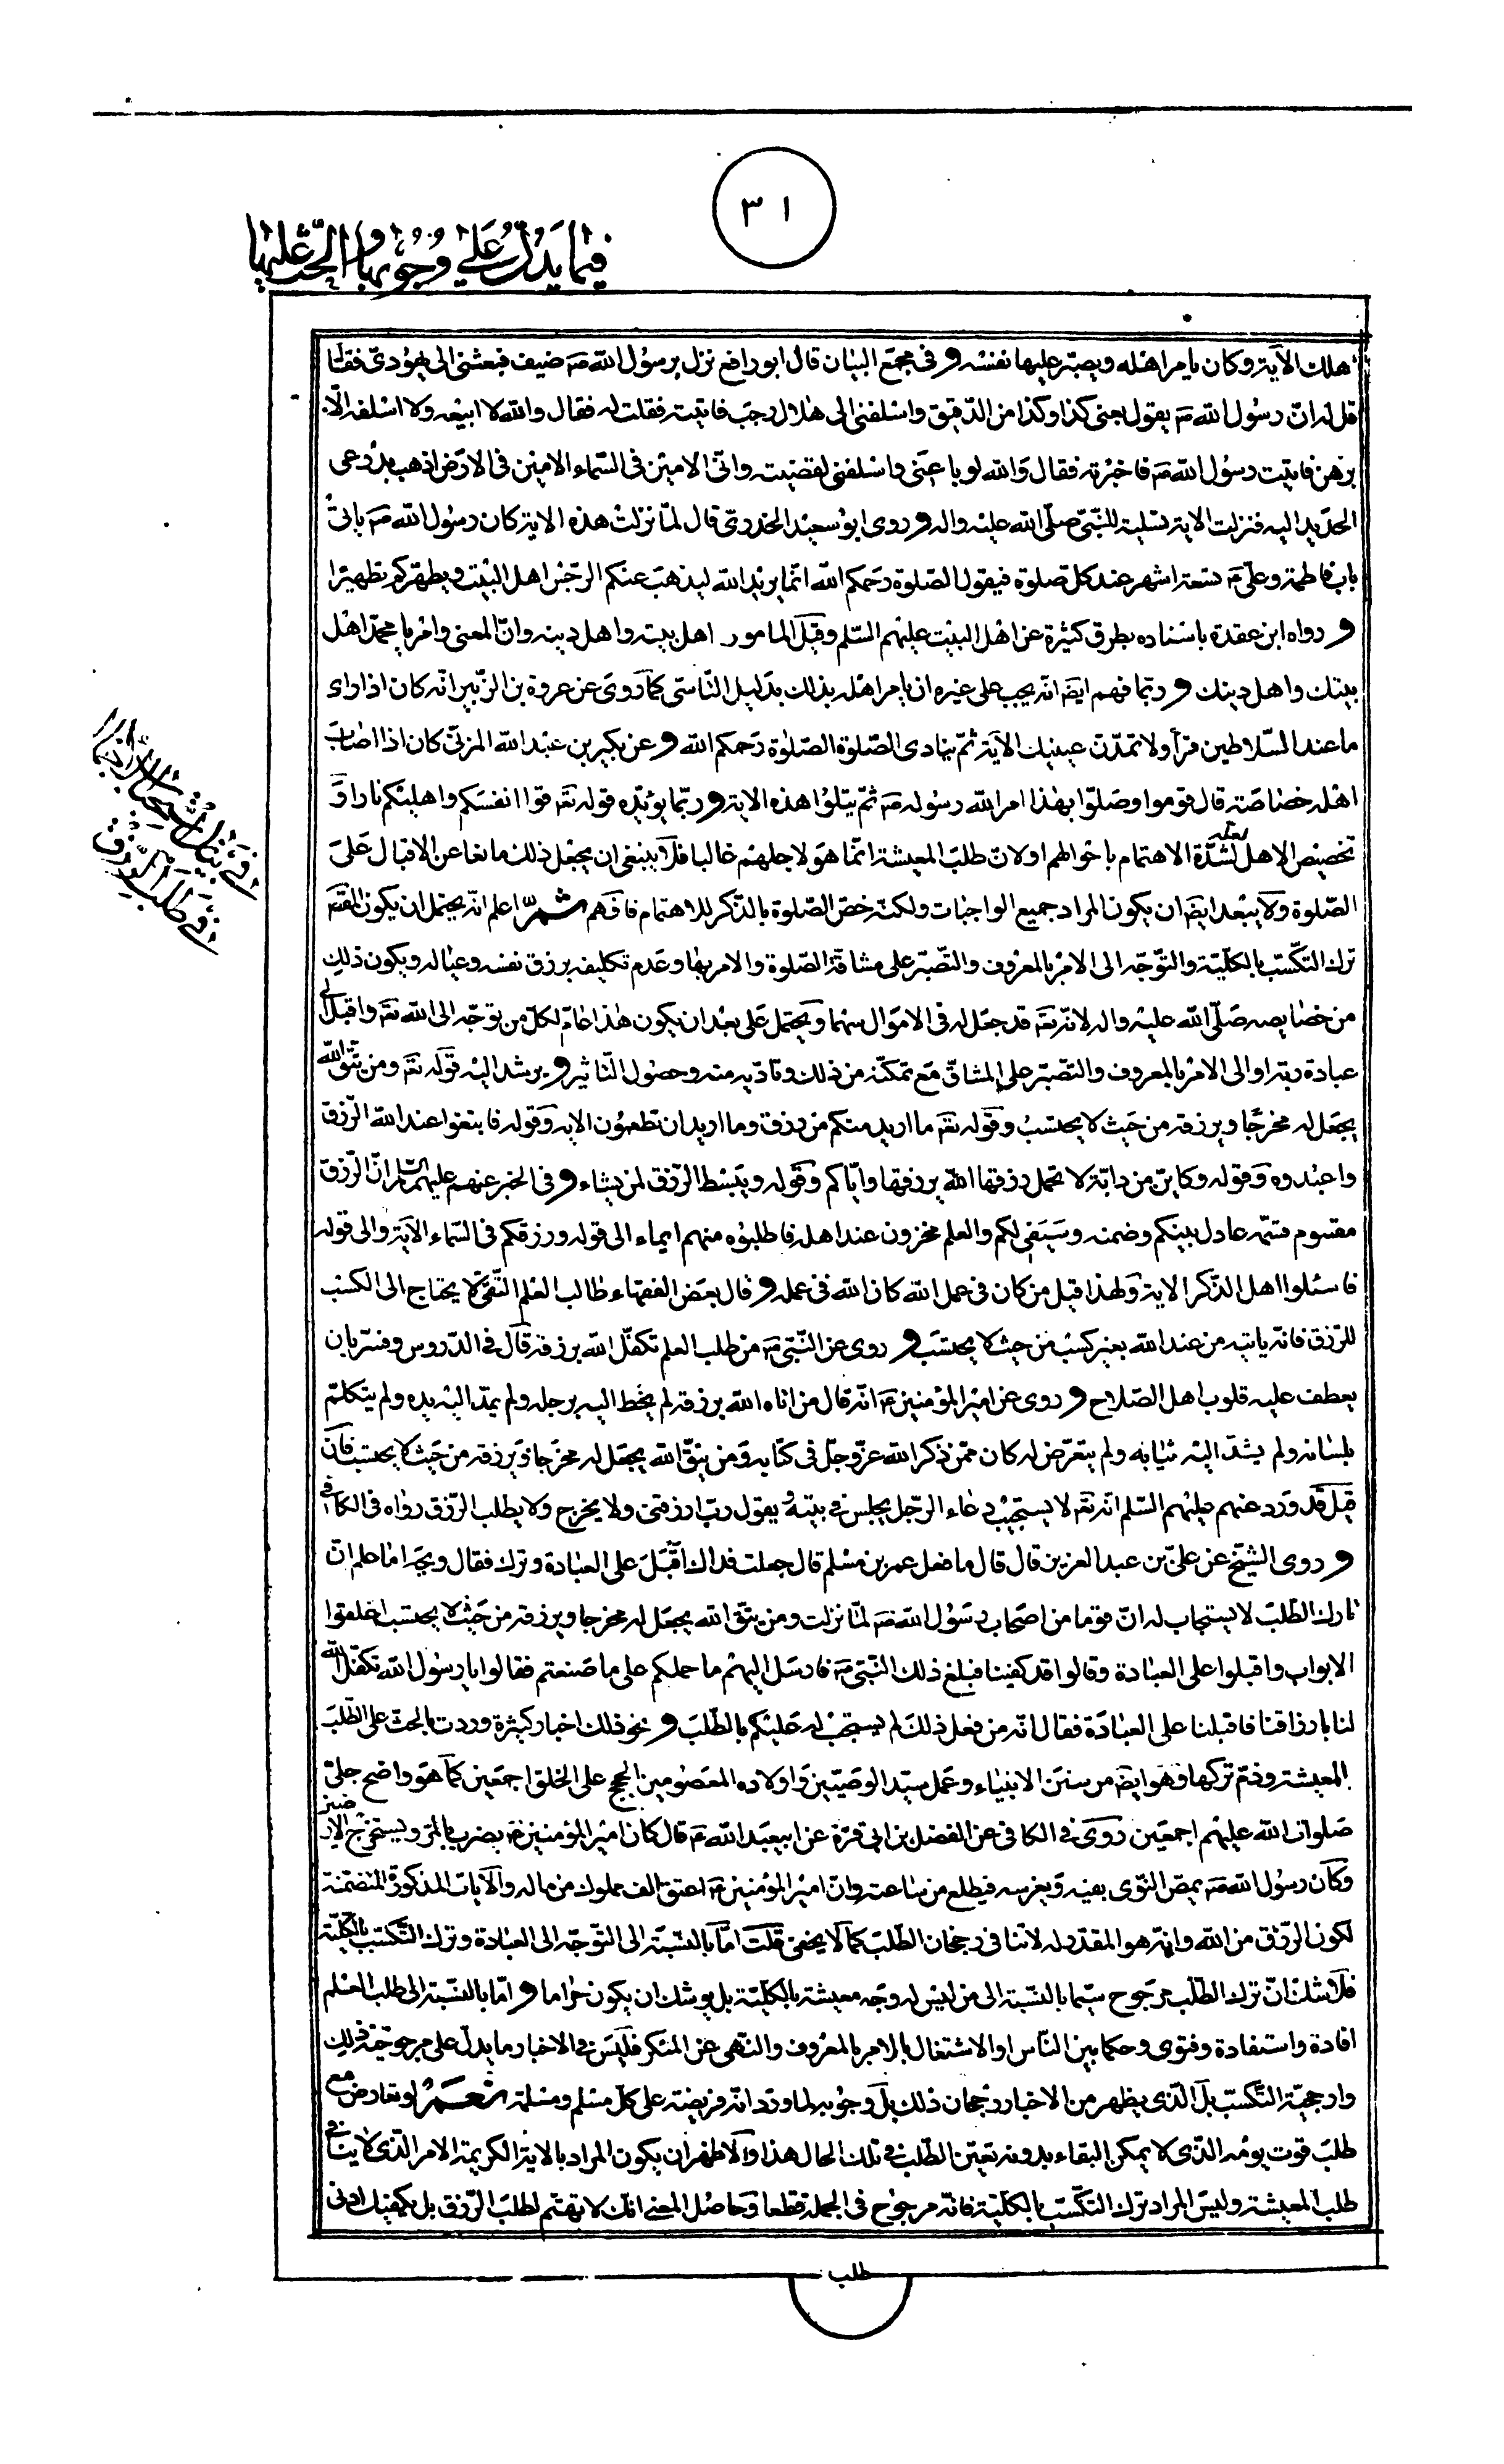 ٣١
فيما يدلّ على وجوبها والحثّ عليها
اهلك الآية وكان يامر اهله ويصبّر عليها نفسه وفى مجمع البيان قال ابو رافع نزل برسول الله صَ ضيف فبعثنى الى يهودىّ فقال
قل له انّ رسول الله صَ يقول بعنى كذا وكذا من الدّقيق واسلفنى الى هلال رجب فاتيته فقلت له فقال والله لا ابيعه ولا اسلفه الّا
برهن فاتيت رسول الله صَ فاخبرته فقال والله لو باعنى واسلفنى لقضيته وانّى لامين فى السّماء الامين فى الارض اذهب بدرعى
الحديد اليه فنزلت الاية تسلية للنّبىّ صلّى الله عليه واله وروى ابو سعيد الخدرىّ قال لمّا نزلت هذه الاية كان رسول الله صَ ياتى
باب فاطمة وعلىّ عَ تسعة اشهر عند كلّ صلوة فيقول الصّلوة رحمكم الله انّما يريد الله ليذهب عنكم الرّجس اهل البيت ويطهّركم تطهيرا
و رواه ابن عقدة باسناده بطرق كثيرة عن اهل البيت عليهم السّلم وقيل المامور اهل بيته واهل دينه وانّ المعنى وامر يا محمّد اهل
بيتك واهل دينك و ربّما فهم ايضَ انّه يجب على غيره ان يامر اهله بذلك بدليل التّاسّى كما روى عن عروة بن الزّبير انّه كان اذا راى
ما عند السّلاطين قرأ ولا تمدّن عينيك الآية ثمّ ينادى الصّلوة الصّلوة رحمكم الله وعن بكير بن عبد الله المزنىّ كان اذا اصاب
اهله خصاصة قال قوموا وصلّوا بهذا امر الله رسوله صَ ثمّ يتلوا هذه الاية وربّما يؤيّده قوله تعَ قوا انفسكم واهليكم نارا وَ
تخصيص الاهل لعلّه لشدّة الاهتمام باحوالهم او لانّ طلب المعيشة انّما هو لاجلهم غالبا فلا ينبغى ان يجعل ذلك مانعا عن الاقبال على
الصّلوة ولا يبعد ايضَ ان يكون المراد جميع الواجبات ولكنّه خصّ الصّلوة بالذّكر للاهتمام فافهم ثمّ اعلم انّه يحتمل ان يكون القصد
ترك التّكسّب بالكلّيّة والتّوجّه الى الامر بالمعروف والتّصبّر على مشاقّة الصّلوة والامر بها وعدم تكليفه برزق نفسه وعياله ويكون ذلك
من خصايصه صلّى الله عليه واله لانّه تعَ قد جعل له فى الاموال سهما ويحتمل على بعد ان يكون هذا عامّ لكلّ من توجّه الى الله تعَ واقبل الى
عبادة ربّه او الى الامر بالمعروف والتّصبّر على المشاقّ مع تمكّنه من ذلك وتادّيه منه وحصول التّاثير ويرشد اليه قوله تعَ ومن يتّق الله
يجعل له مخرجا ويرزقه من حيث لا يحتسب وقوله تعَ ما اريد منكم من رزق وما اريد ان تطعمون الاية وقوله فابتغوا عند الله الرّزق
واعبدوه وقوله وكايّن من دابّة لا تحمل رزقها الله يرزقها وايّاكم وقوله ويبسط الرّزق لمن يشاء وفى الخبر عنهم عليهم السّلام انّ الرّزق
مقسوم قسّمه عادل بينكم وضمنه وسيفى لكم والعلم مخزون عند اهله فاطلبوه منهم ايماء الى قوله ورزقكم فى السّماء الآية والى قوله
فاسئلوا اهل الذّكر الاية ولهذا قيل من كان فى عمل الله كان الله فى عمله وقال بعض الفقهاء طالب العلم التّقىّ لا يحتاج الى الكسب
للرّزق فانّه ياتيه من عند الله بغير كسب من حيث لا يحتسب وروى عن النّبىّ صَ من طلب العلم تكفّل الله برزقه قال فى الدّروس وفسّر بان
يعطف عليه قلوب اهل الصّلاح وروى عن امير المؤمنين عَ انّه قال من اتاه الله برزقه لم يخط اليه برجله ولم يمدّ اليه يده ولم يتكلّم
بلسانه ولم يشدّ اليه ثيابه ولم يتعرّض له كان ممّن ذكر الله عزّ وجلّ فى كتابه ومن يتّق الله يجعل له مخرجا ويرزقه من حيث لا يحتسب فان
قيل قد ورد عنهم عليهم السّلم انّه تعَ لا يستجيب دعاء الرّجل يجلس فى بيته ويقول ربّ ارزقنى ولا يخرج ولا يطلب الرّزق رواه فى الكافى
و روى الشّيخ عن علىّ بن عبد العزيز قال قال ما فعل عمر بن مسلم قال جعلت فداك اقبل على العبادة وترك فقال ويحه اما علم انّ
تارك الطّلب لا يستجاب له انّ قوما من اصحاب رسول الله صَ لمّا نزلت ومن يتّق الله يجعل له مخرجا ويرزقه من حيث لا يحتسب اغلقوا
الابواب واقبلوا على العبادة وقالوا قد كفينا فبلغ ذلك النّبىّ صَ فارسل اليهم ما حملكم على ما صنعتم فقالوا يا رسول الله تكفّل الله
لنا بارزاقنا فاقبلنا على العبادة فقال انّه من فعل ذلك لم يستجب له عليكم بالطّلب ونحو ذلك اخبار كثيرة وردت بالحثّ على الطّلب
المعيشة وذمّ تركها وهو ايضَ من سنن الانبياء وعمل سيّد الوصيّين واولاده المعصومين الحجج على الخلق اجمعين كما هو واضح جلىّ
صلوات الله عليهم اجمعين روى فى الكافى عن الفضل بن ابى قرّة عن ابيعبد الله عَ قال كان امير المؤمنين عَ يضرب بالمرّ ويستخرج الارضين
وكان رسول الله صَ يمصّ النّوى بفيه ويغرسه فيطلع من ساعته وانّ امير المؤمنين عَ اعتق الف مملوك من ماله والآيات المذكورة المتضمّنة
لكون الرّزق من الله وانّه هو المقدّر له لا تنافى رجحان الطّلب كما لا يخفى قلت امّا بالنّسبة الى التّوجّه الى العبادة وترك التّكسّب بالكلّيّة
فلا شكّ انّ ترك الطّلب مرجوح سيّما بالنّسبة الى من ليس له وجه معيشة بالكلّيّة بل يوشك ان يكون حراما وامّا بالنّسبة الى طلب العلم
افادة واستفادة وفتوى وحكما بين النّاس او الاشتغال بالامر بالمعروف والنّهى عن المنكر فليس فى الاخبار ما يدلّ على مرجوحيّة ذلك
وارجحيّة التّكسّب بل الّذى يظهر من الاخبار رجحان ذلك بل وجوبه لما ورد انّه فريضة على كلّ مسلم ومسلمة نعم لو تعارض مع
طلب قوت يومه الّذى لا يمكن البقاء بدونه تعيّن الطّلب فى تلك الحال هذا والاظهر ان يكون المراد بالاية الكريمة الامر الّذى لا ينافى
طلب المعيشة وليس المراد ترك التّكسّب بالكلّيّة فانّه مرجوح فى الجملة قطعا وحاصل المعنى انّك لا تهتمّ لطلب الرّزق بل يكفيك ادنى
طلب
فى طلب الرّزق